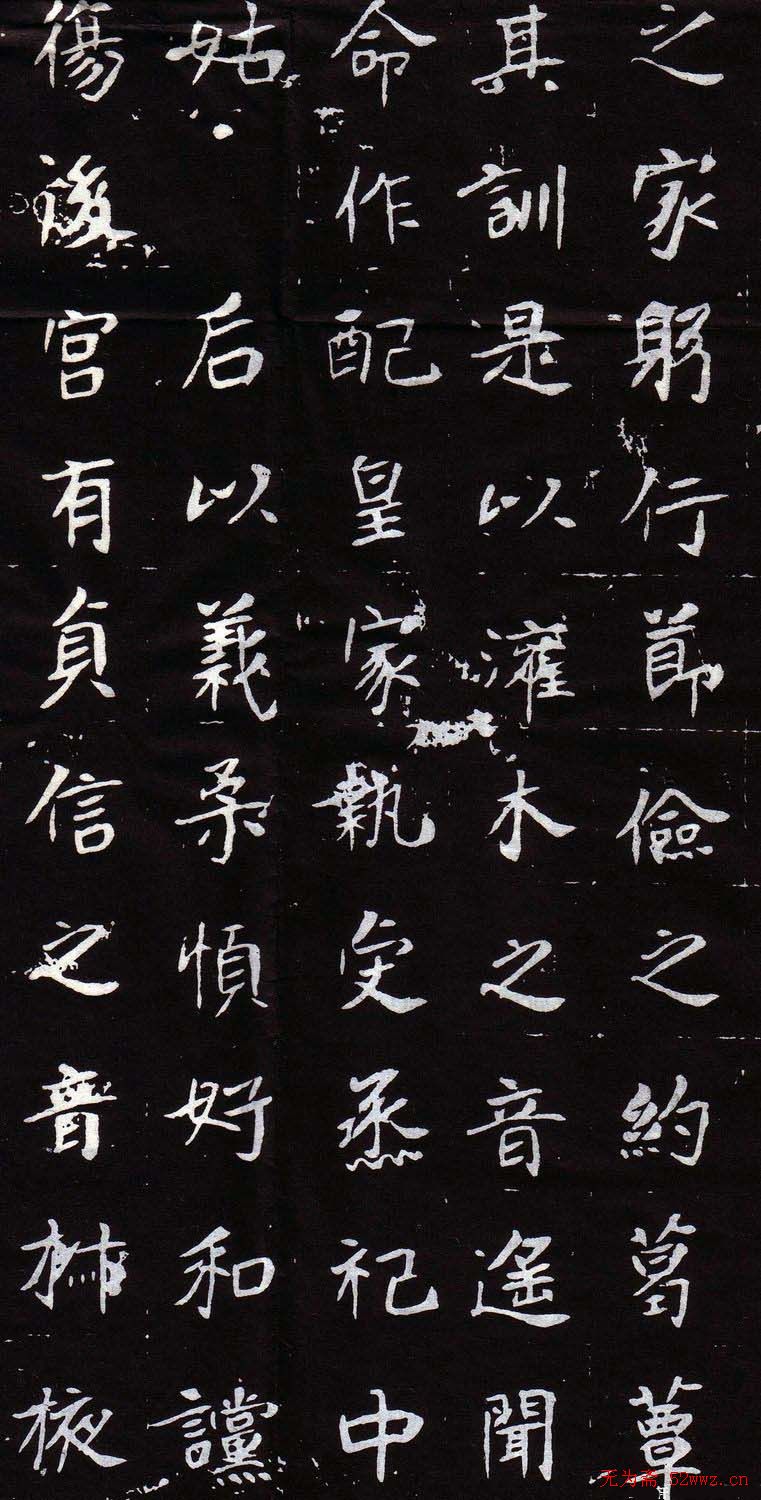 之家躬行節儉之約葛蕈
其訓是以灌木之音遙聞
命作配皇家執烝祀中
姑后以義柔慎好和讜
傷後宮有貞信之音椒掖
无为斋 52wwz.cn